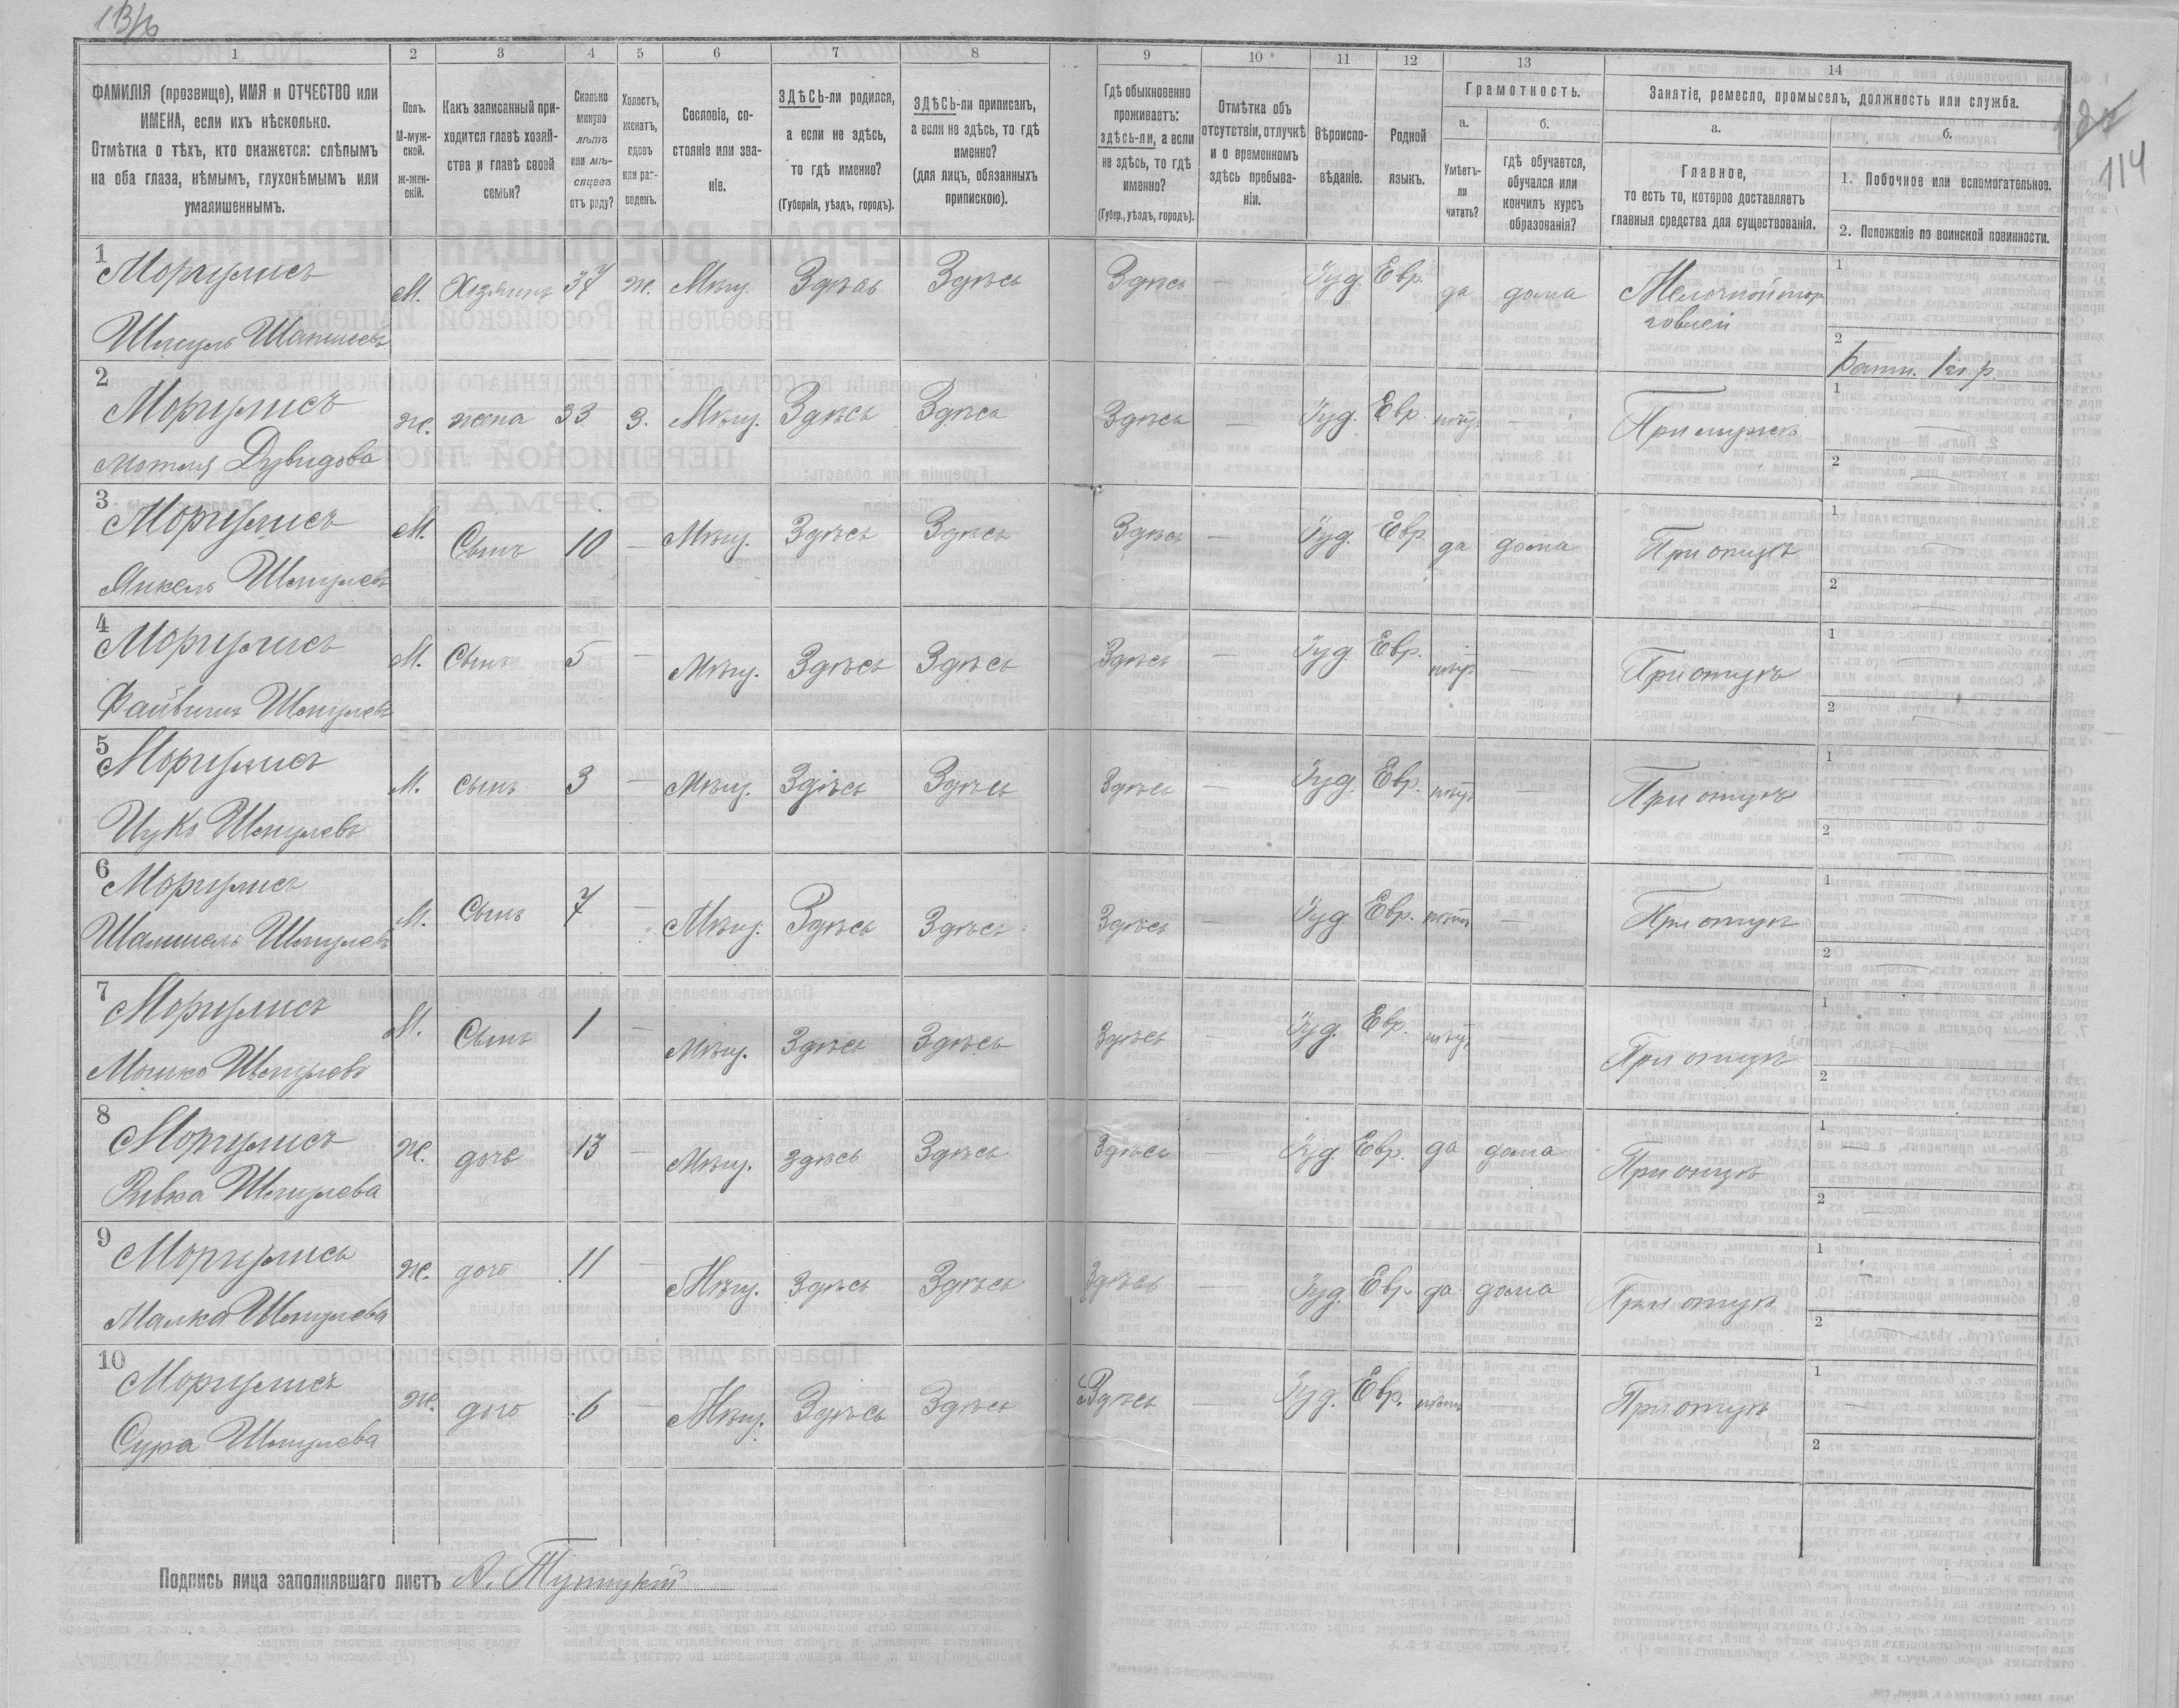 13/б
1 2 3 4 5 6 7 8 9 10 11 12 13 14
ФАМИЛІЯ (прозвище), ИМЯ и ОТЧЕСТВО или ИМЕНА, если ихъ нѣсколько.
Отмѣтка о тѣхъ, кто окажется: слѣпымъ на оба глаза, нѣмымъ, глухонѣмымъ или умалишеннымъ.
Полъ. М-мужской. Ж-женскій.
Какъ записанный приходится главѣ хозяйства и главѣ своей семьи?
Сколько минуло лѣтъ или мѣсяцевъ отъ роду?
Холостъ, женатъ, вдовъ или разведенъ.
Сословіе, состояніе или званіе.
ЗДѢСЬ-ли родился, а если не здѣсь, то гдѣ именно? (Губернія, уѣздъ, городъ).
ЗДѢСЬ-ли приписанъ, а если не здѣсь, то гдѣ именно? (для лицъ, обязанныхъ припискою).
Гдѣ обыкновенно проживаетъ: здѣсь-ли, а если не здѣсь, то гдѣ именно? (Губер., уѣздъ, городъ).
Отмѣтка объ отсутствіи, отлучкѣ и о временномъ здѣсь пребываніи.
Вѣроисповѣданіе.
Родной языкъ.
Грамотность.
а. Умѣетъ-ли читать?
б. гдѣ обучается, обучался или кончилъ курсъ образованія?
Занятіе, ремесло, промыселъ, должность или служба.
а. Главное, то есть то, которое доставляетъ главныя средства для существованія.
б. 1. Побочное или вспомогательное.
2. Положеніе по воинской повинности.
114
1 Моргулисъ М. Хозяинъ 37 ж. Мѣщ. Здѣсь Здѣсь Здѣсь — Іуд. Евр. да дома Мелочной тор 1
Шмуль говлей 2
2 Моргулисъ ж. жена 33 З. Мѣщ. Здѣсь Здѣсь Здѣсь — Іуд. Евр. нѣтъ — При мужѣ 1 —
Дувидова 2 —
3 Моргулисъ М. Сынъ 10 — Мѣщ. Здѣсь Здѣсь Здѣсь — Іуд. Евр. да дома При отцѣ 1 —
Янкель Шмулевъ 2 —
4 Моргулисъ М. Сынъ 5 — Мѣщ. Здѣсь Здѣсь Здѣсь — Іуд. Евр. нѣтъ — При отцѣ 1 —
Файвишъ Шмулевъ 2 —
5 Моргулисъ М. сынъ 3 — Мѣщ. Здѣсь Здѣсь Здѣсь — Іуд. Евр. нѣтъ — При отцѣ 1 —
Шмулевъ 2 —
6 Моргулисъ М. Сынъ 7 — Мѣщ. Здѣсь Здѣсь Здѣсь — Іуд. Евр. нѣтъ — При отцѣ 1 —
Шмулевъ 2 —
7 Моргулисъ М. Сынъ 1 — Мѣщ. Здѣсь Здѣсь Здѣсь — Іуд. Евр. нѣтъ — При отцѣ 1 —
Мошко Шмулевъ 2 —
8 Моргулисъ ж. дочь 13 — Мѣщ. здѣсь Здѣсь Здѣсь — Іуд. Евр. да дома При отцѣ 1 —
Ривка Шмулева 2 —
9 Моргулисъ ж. дочь 11 — Мѣщ. Здѣсь Здѣсь Здѣсь — Іуд. Евр. да дома При отцѣ 1 —
Малка Шмулева 2 —
10 Моргулисъ ж. дочь 6 — Мѣщ. Здѣсь Здѣсь Здѣсь — Іуд. Евр. нѣтъ — При отцѣ 1 —
Сура Шмулева 2 —
Подпись лица заполнявшаго листъ А.